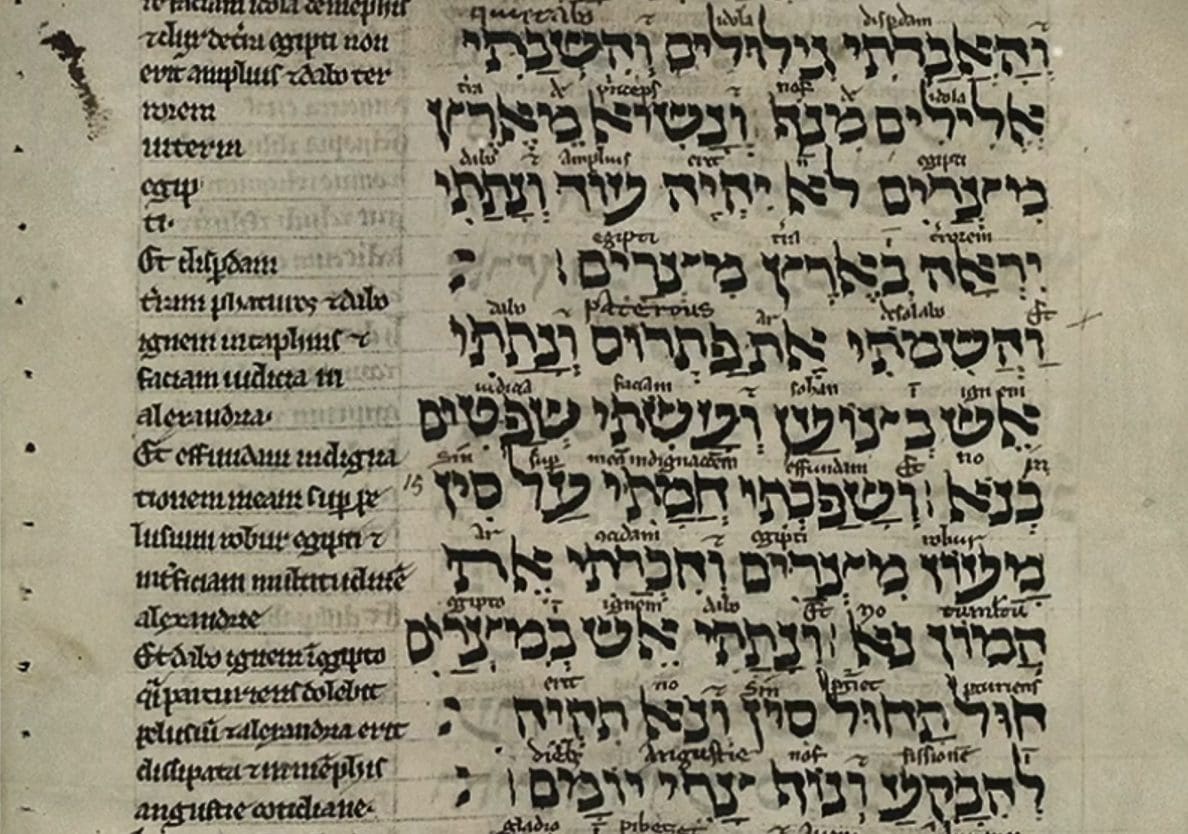 te faciam idola de memphis
⁊ dux de tra egipti non
erit amplius ⁊ dabo ter
rorem
in terra
egip
ti·
Et disperdam
terram phatures ⁊ dabo
ignem in taphnis ⁊
faciam iudicia in
alexandria·
Et effundam indigna
tionem meam sup pe
lusium robur egipti ⁊
interficiam multitudinē
alexandrie
Et dabo ignem ī egipto
qī parturiens dolebit
pelusiū ⁊ alexandria erit
dissipata ⁊ in mēphis
angustie cotidiane·
⁊ idola disperdam ⁊
והאבדתי גילולים והשבתי
tra de princeps ⁊ nof de idola
אלילים מנף ונשיא מארץ
dabo ⁊ amplius erit n̄ egipti
מיצרים לא יהיה עוד ונתתי
egipti tra timorem
יראה בארץ מיצרים :
dabo ⁊ patrous ar desolabo Et
והשמתי את פתרוס ונתתי
iudicia faciam ⁊ sohan ī ignem
אש בצוען ועשתי שפטים
sin sup meā indignacōem effundam Et no in
15 בנא ושפכתי חמתי על סין
ar occidam ⁊ egipti robur
מעוז מיצרים והכרתי את
egipto ī ignem dabo Et no
המון נא ונתתי אש במיצרים
erit no ⁊ sin pariet pariens
חול תחול סין ונא תהיה :
dieb angustie nof ⁊ fissionē ī
להבקע ונוף צרי יומים :
gladio ī pibecet